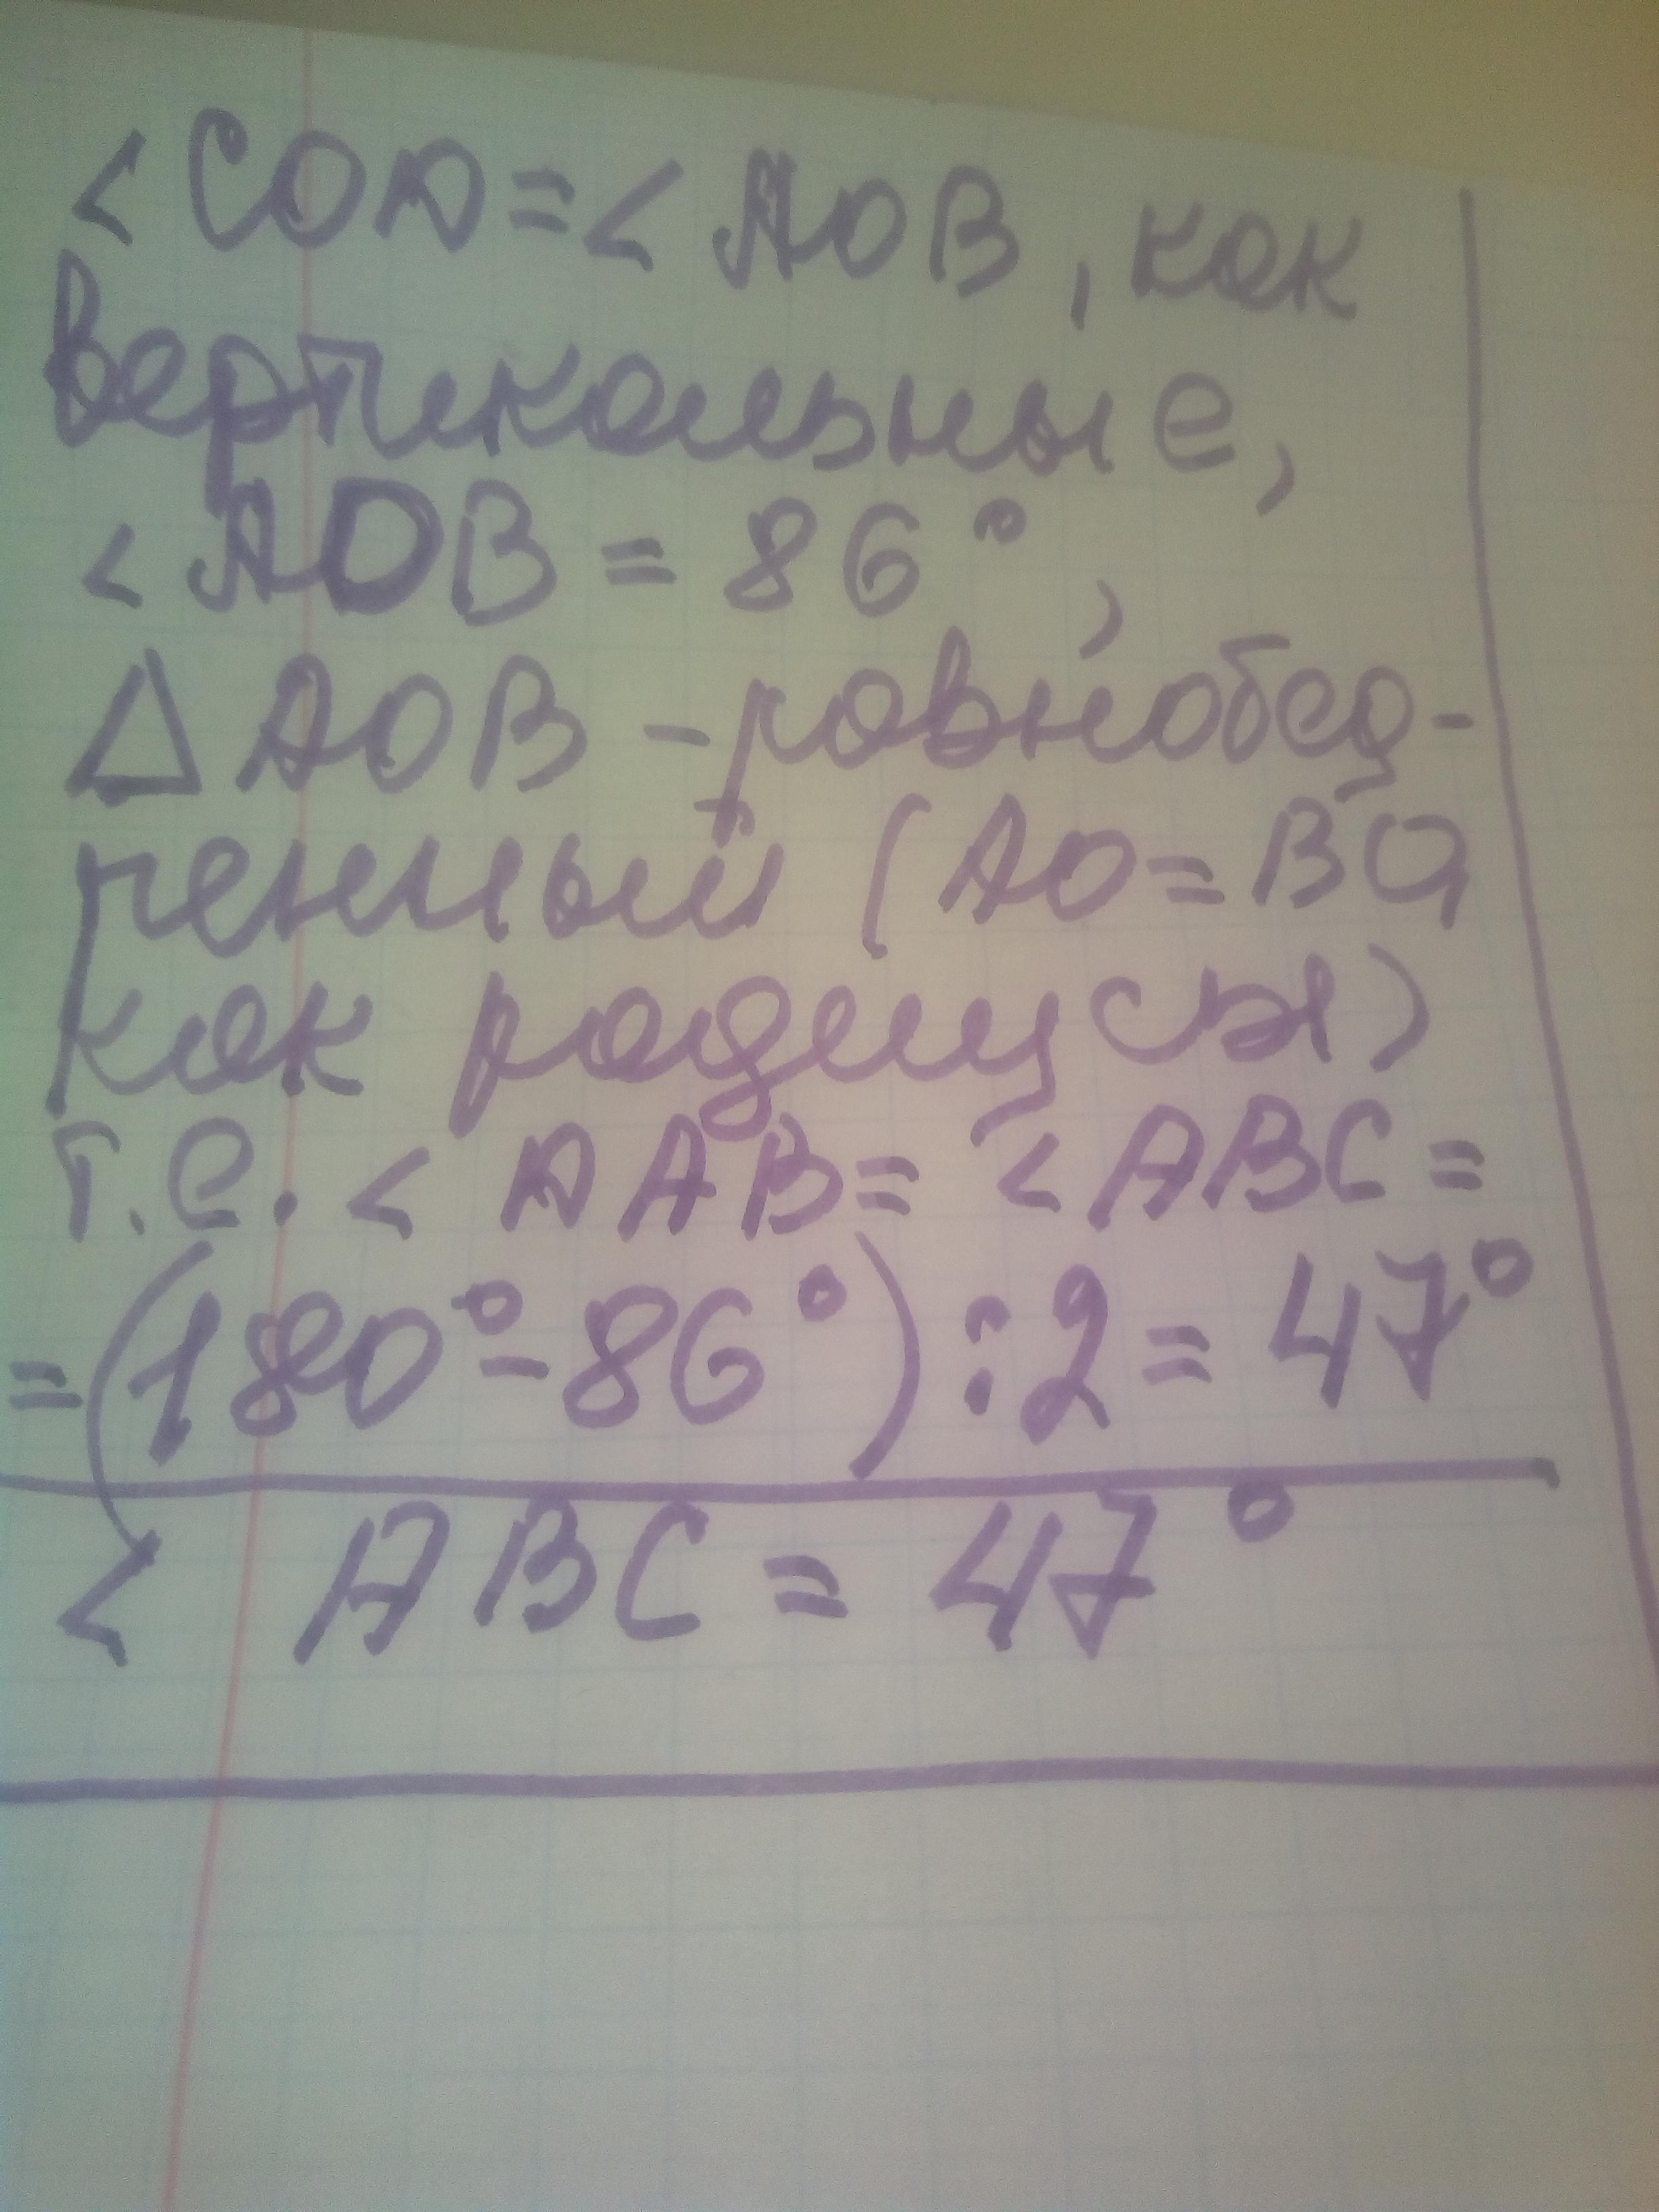 <COD=<AOB, как
вертикальные,
<AOB = 86°,
△AOB - равнобед-
ренный (AO=BO,
как радиусы)
т.е. <DAB= <ABC=
=(180°-86°):2=47°
< ABC = 47°